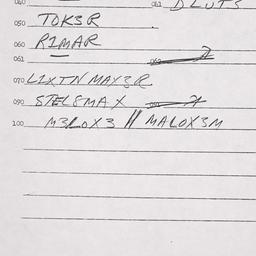 060 061 DLUTS
050 TOK3R
060 RIMAR
061
070 LIXTN MAY3R
090 STEL8MAX
100 M3LOX3 // MALOX3M